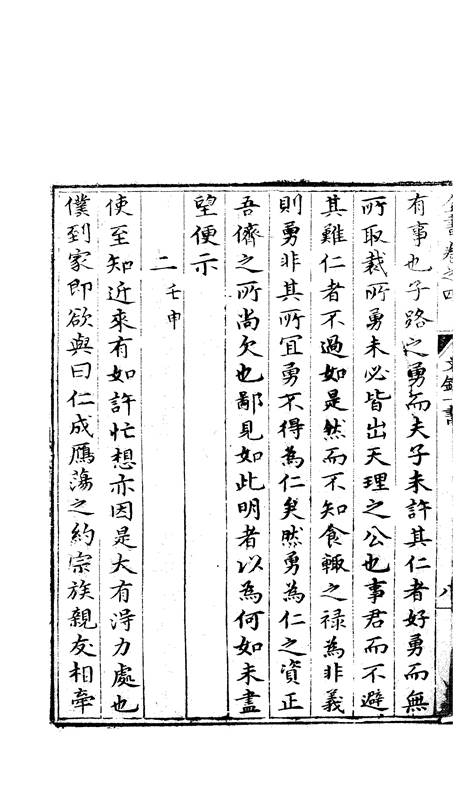 全書卷之四
文錄一書
八
有事也子路之勇而夫子未許其仁者好勇而無
所取裁所勇未必皆出天理之公也事君而不避
其難仁者不過如是然而不知食輒之祿為非義
則勇非其所宜勇不得為仁矣然勇為仁之資正
吾儕之所尚欠也鄙見如此明者以為何如未盡
望便示
二壬申
使至知近來有如許忙想亦因是大有淂力處也
僕到家即欲與曰仁成鴈蕩之約宗族親友相牽